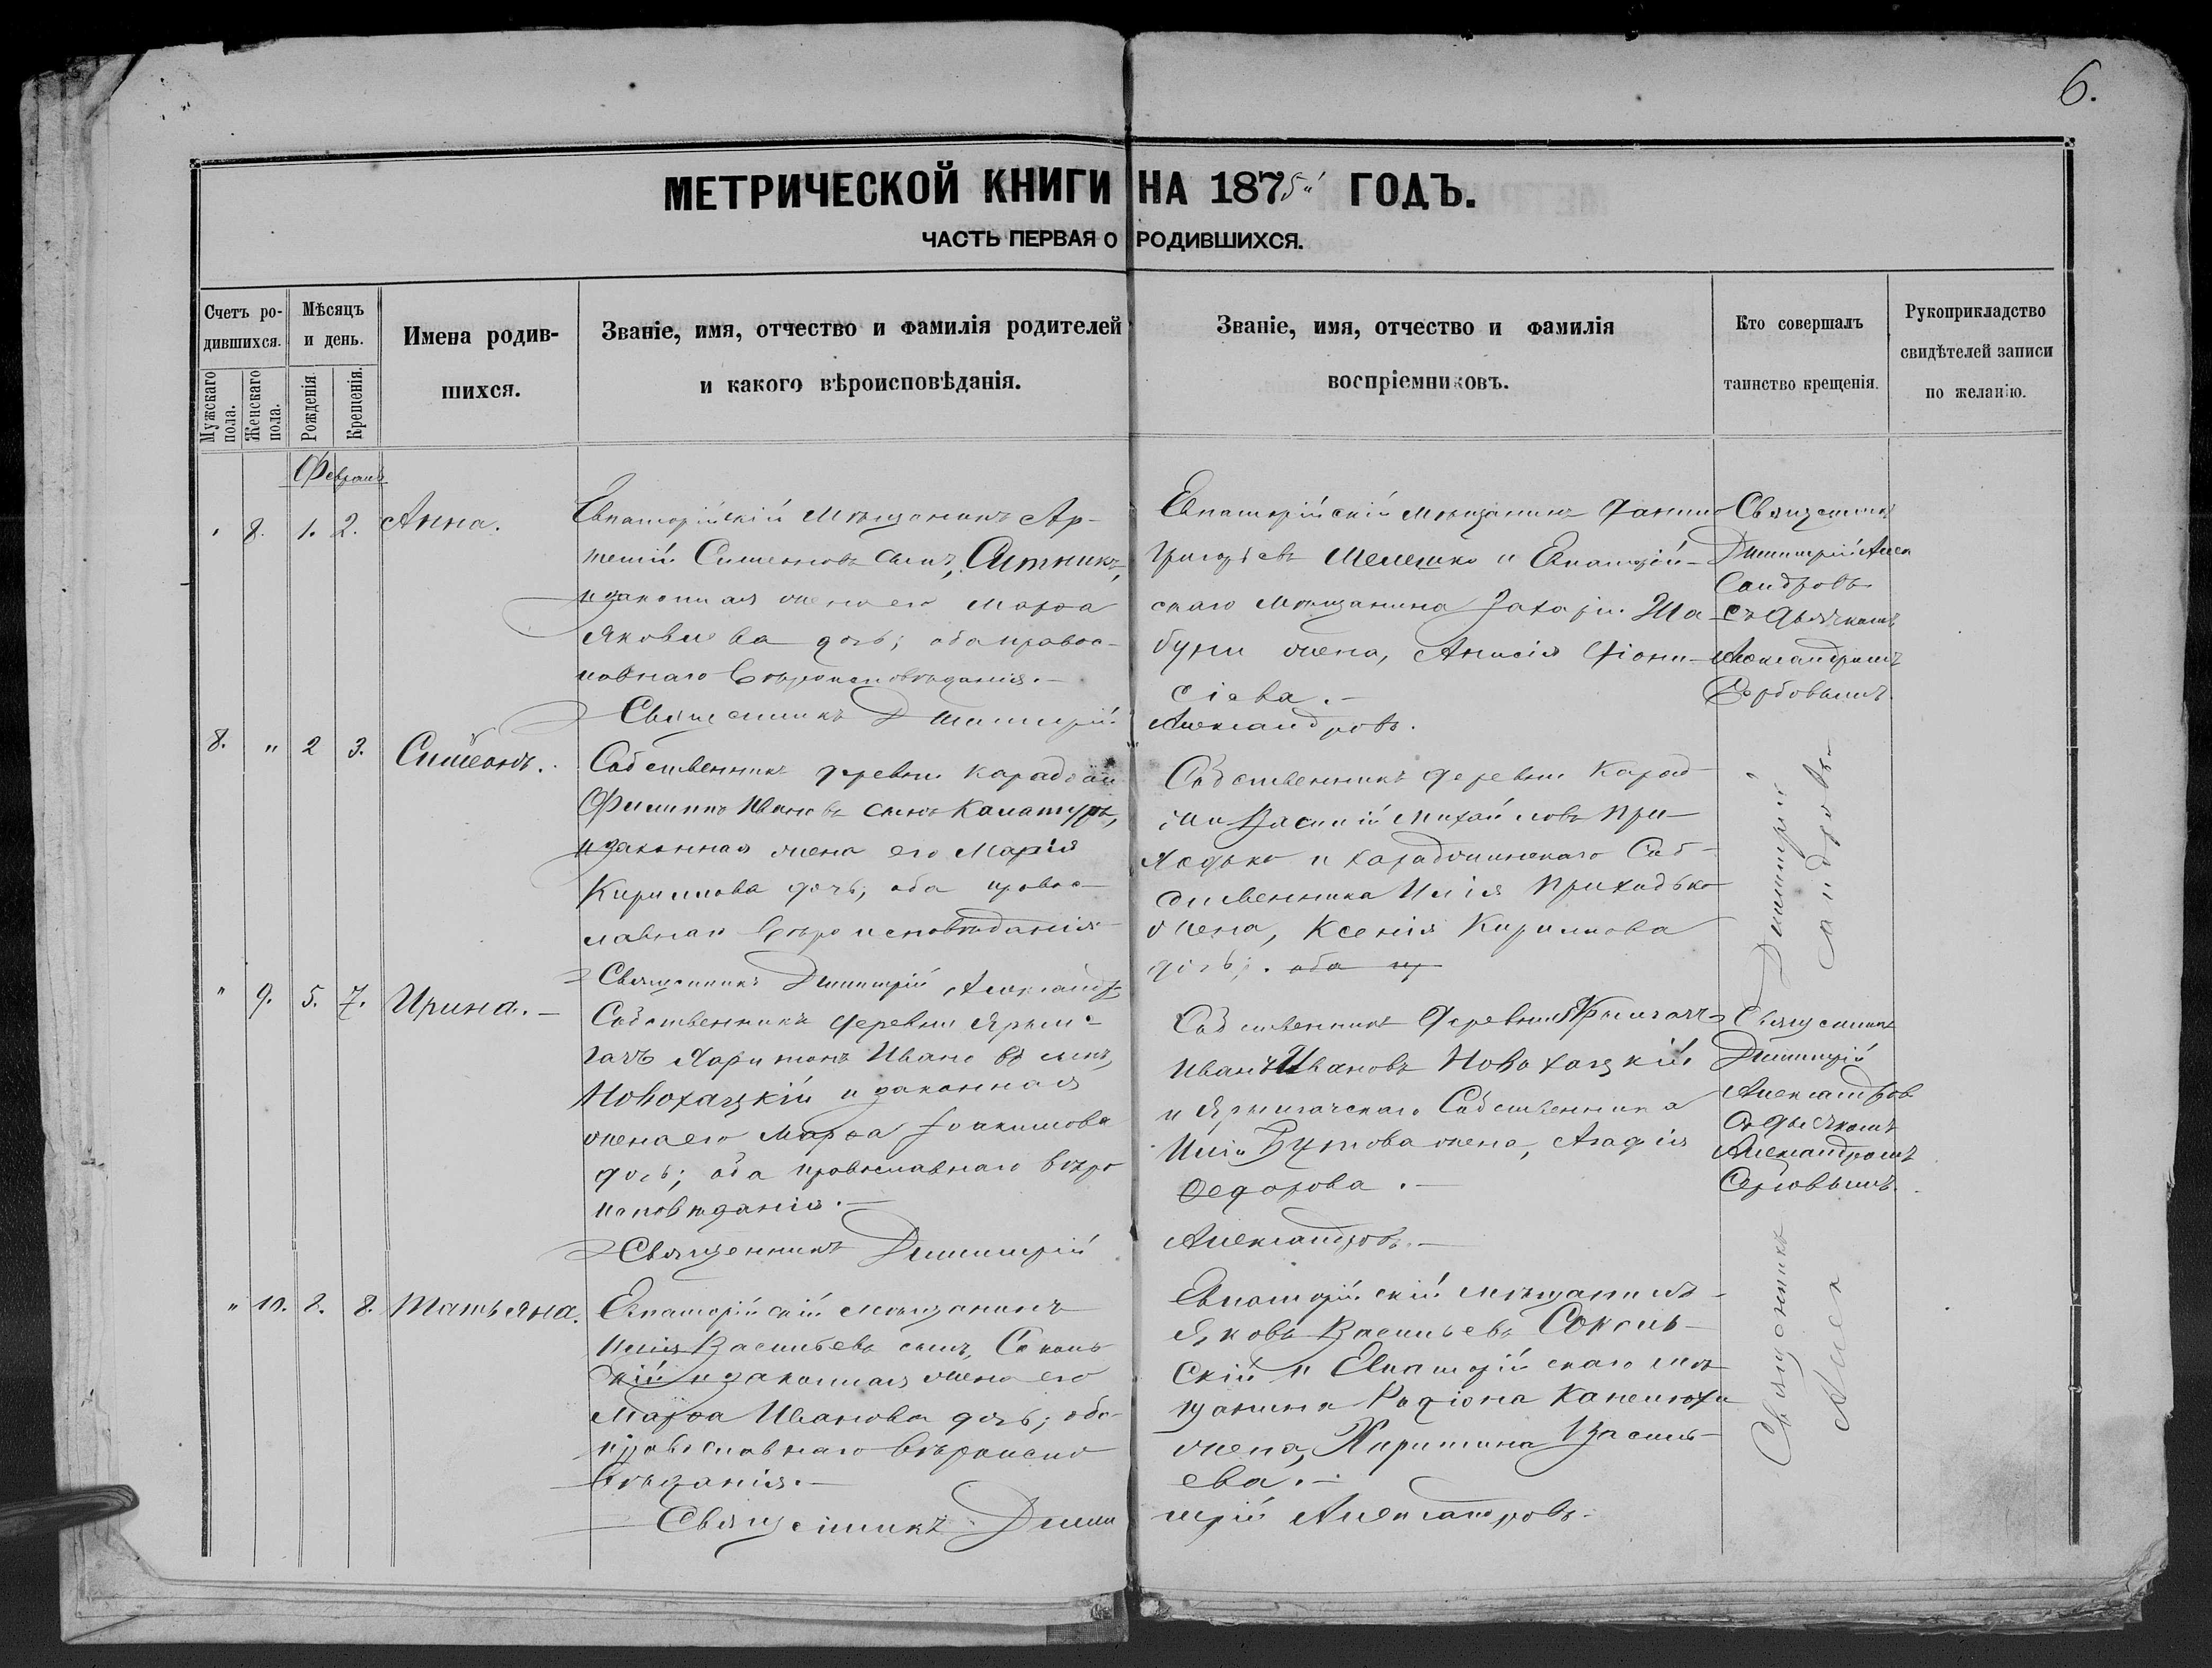 6.
МЕТРИЧЕСКОЙ КНИГИ НА 1875й ГОДЪ.
ЧАСТЬ ПЕРВАЯ О РОДИВШИХСЯ.
Счетъ ро-
дившихся.
Мужскаго пола.
Женскаго пола.
Мѣсяцъ
и день.
Рожденія.
Крещенія.
Имена родив-
шихся.
Званіе, имя, отчество и фамилія родителей
и какого вѣроисповѣданія.
Званіе, имя, отчество и фамилія
воспріемниковъ.
Кто совершалъ
таинство крещенія.
Рукоприкладство
свидѣтелей записи
по желанію.
Февраль
" 8. 1. 2. Анна.
Евпаторійскій мѣщанинъ Ар-
темій Симеоновъ сынъ, Ситникъ,
и законная жена его Марѳа
Яковлева дочь; оба правос-
лавнаго вѣроисповѣданія.—
Священникъ Димитрій
Евпаторійскій мѣщанинъ
Григорьевъ Мелешко и Евпаторій-
скаго мѣщанина Захаріи Ша-
буни жена, Анисія Діони-
сіева.—
Александровъ.
Священникъ
Димитрій Алек
сандровъ
съ дьячкомъ
Александромъ
8. " 2 3. Симеонъ.
Собственникъ деревни Караджи
Филиппъ Ивановъ сынъ Калатуръ,
и законная жена его Марія
Кириллова дочь; оба правос-
лавнаго вѣроисповѣданія
Священникъ Димитрій Александр
Собственникъ деревни Карад-
жи Василій Михайловъ При-
ходько и Караджинскаго Соб-
ственника Иліи Приходько
жена, Ксенія Кириллова
дочь; . оба пр
Димитрій
сандровъ
" 9. 5. 7. Ирина.—
Собственникъ деревни Ярыл-
гачъ Харитонъ Ивановъ сынъ,
Новохацкій и законная
жена его Марѳа Іоакимова
дочь; оба православнаго вѣро
исповѣданія.—
Священникъ Димитрій
Собственникъ деревни Ярылгачъ
Иванъ Ивановъ Новохацкій
и Ярылгачскаго Собственника
Иліи Бутова жена, Агафія
Ѳедорова.—
Александровъ.—
Священникъ
Димитрій
Александров
съ дьячкомъ
Александромъ
" 10. 8. 8. Татьяна.
Евпаторійскій мѣщанинъ
Илія Васильевъ сынъ, Соколь
скій и законная жена его
Марѳа Иванова дочь; оба
православнаго вѣроиспо
вѣданія.—
Священникъ Дими
Евпаторійскій мѣщанинъ
Яковъ Васильевъ Соколь-
скій и Евпаторійскаго мѣ
щанина Родіона Капелюхи
жена, Харитина Василь-
ева.—
трій Александровъ.
Священникъ
Алек